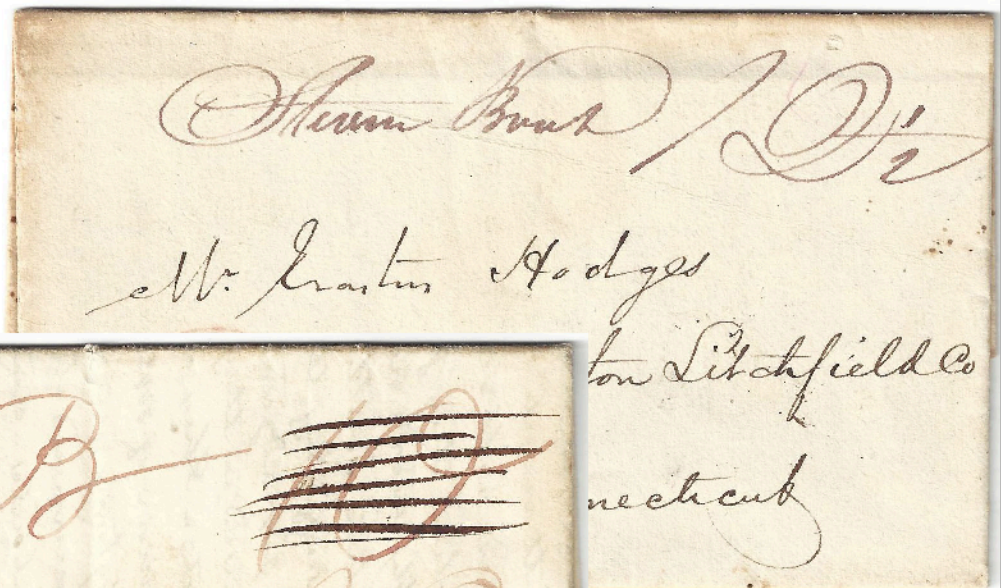 Steam Boat
Mr. Erastus Hodges
ton Litchfield Co
necticut
B 10